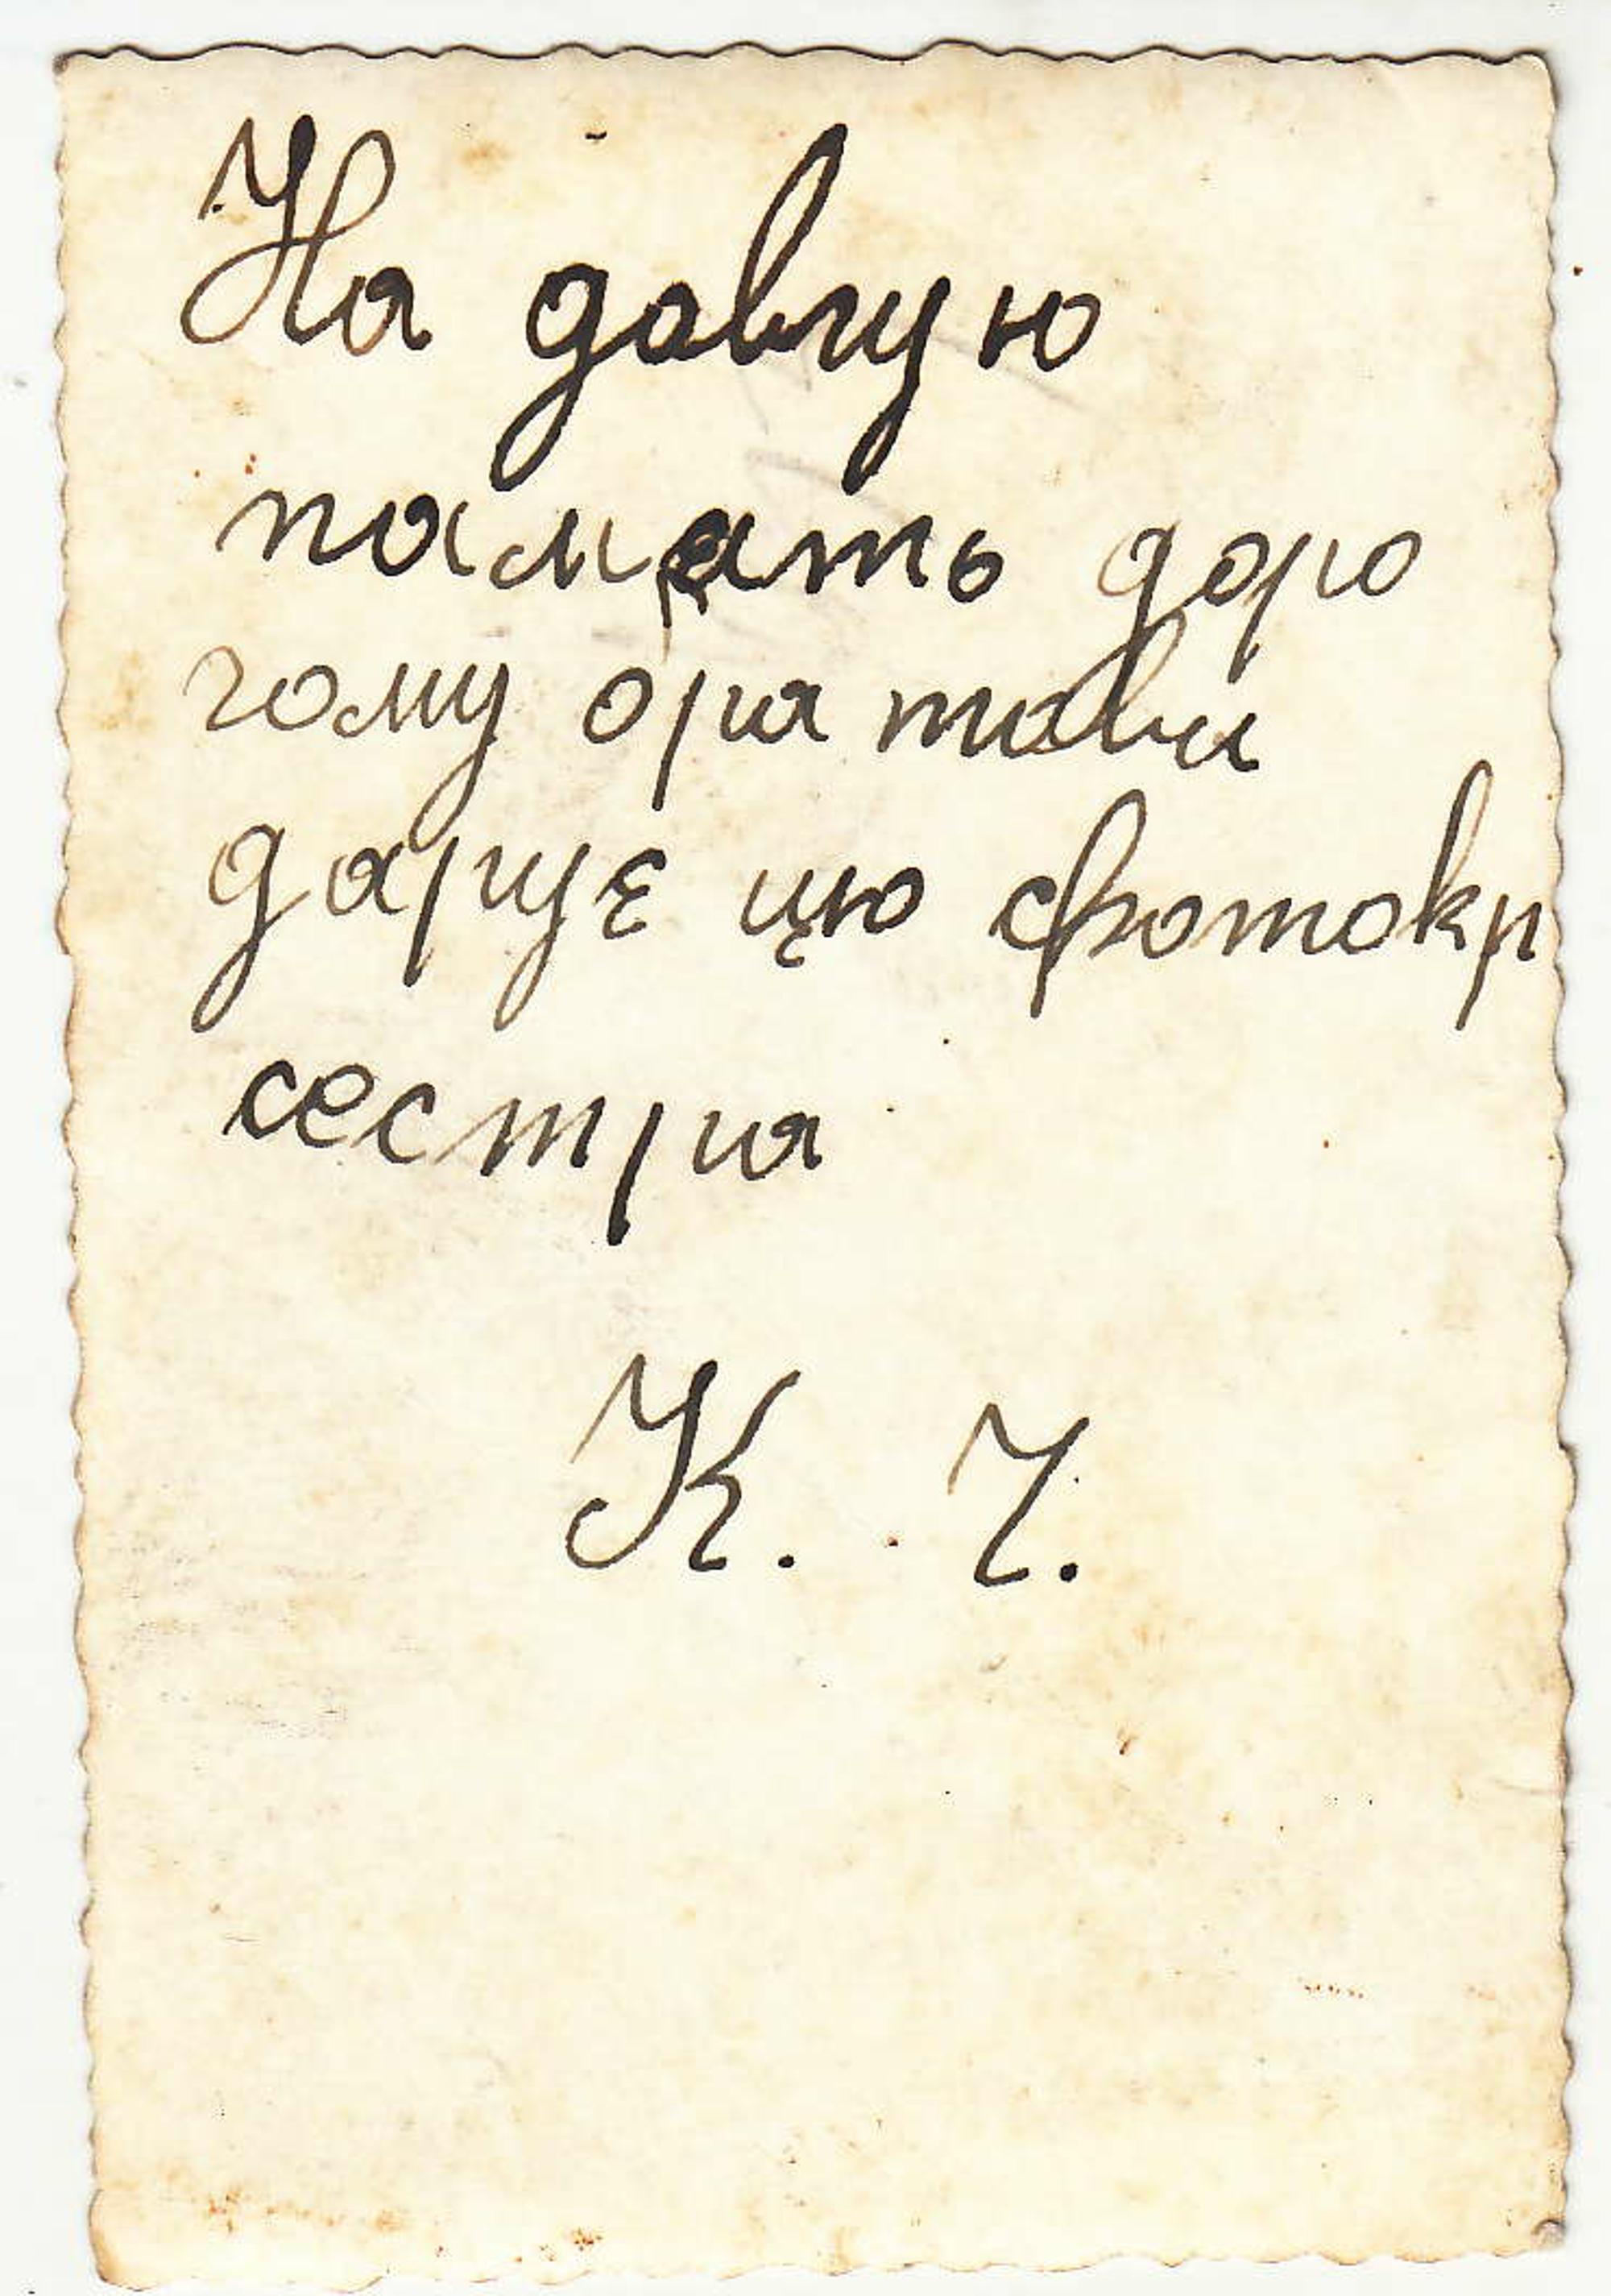 На довгую
память доро
гому братови
дарує цю фотокр
сестра
К. Ч.